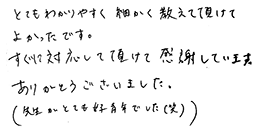 とてもわかりやすく 細かく 教えて頂けて
よかったです。
すぐに対応して頂けて 感謝しています
ありがとうございました。
(先生がとても好青年でした(笑))